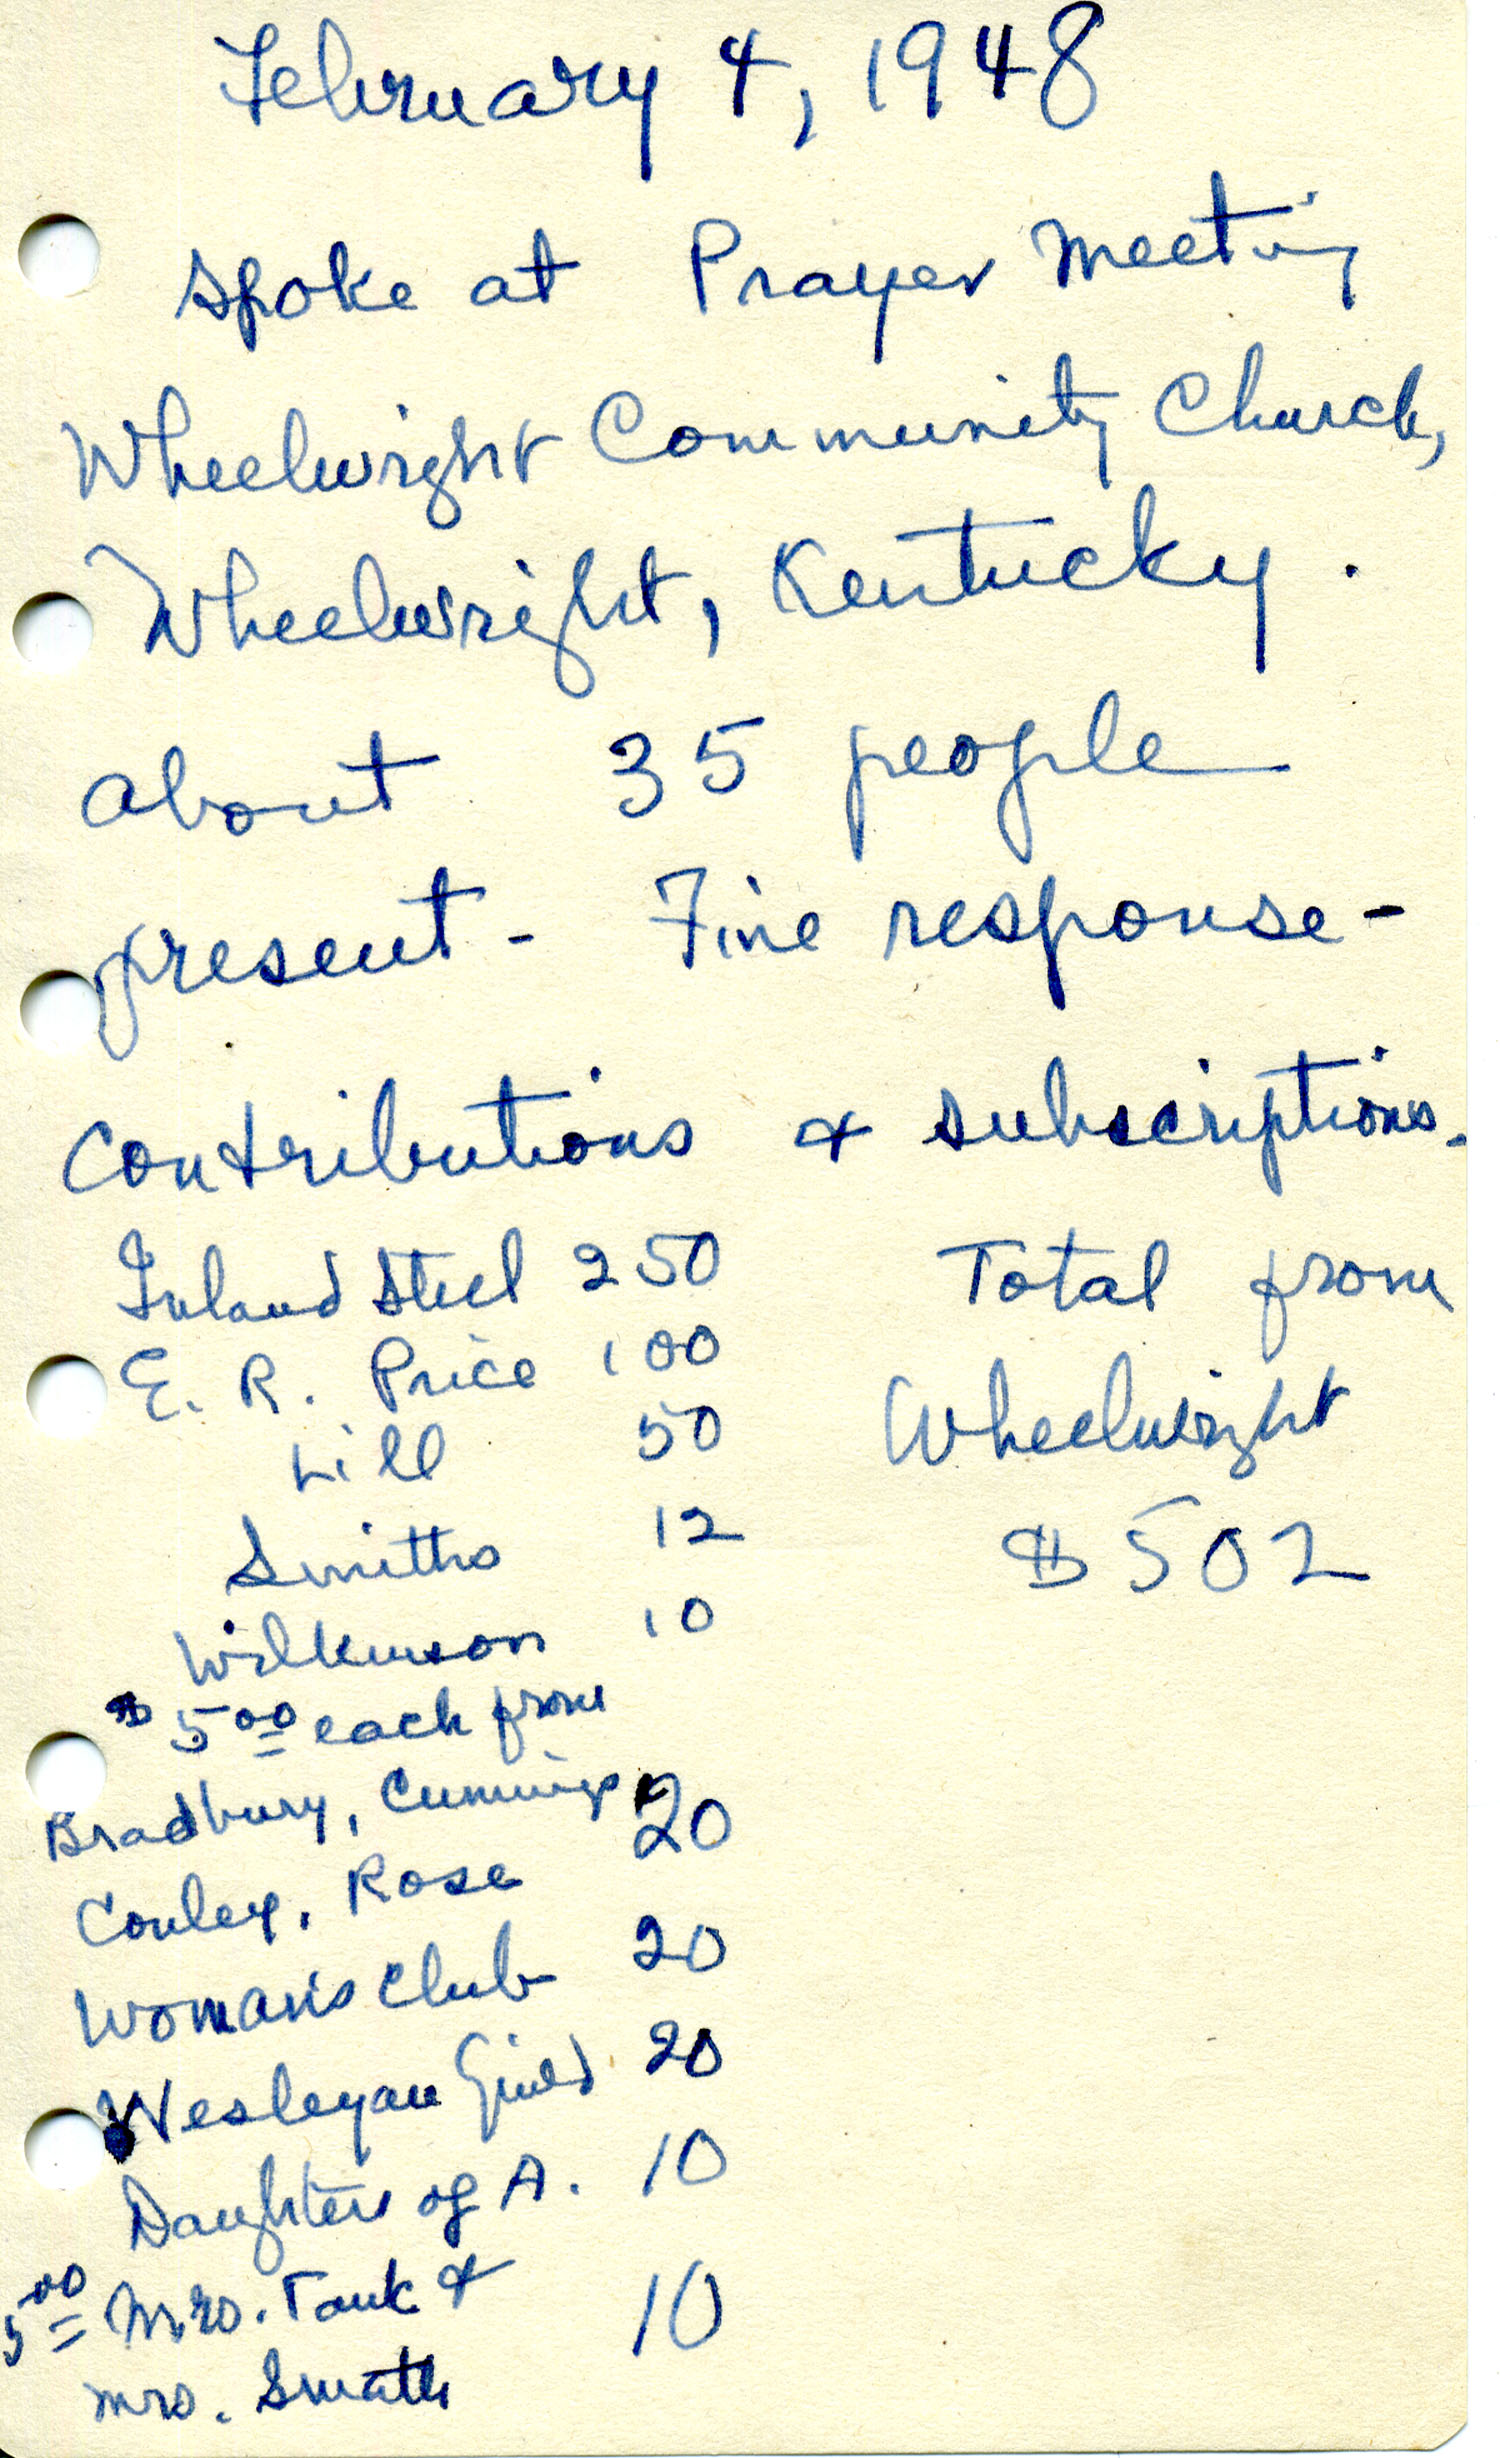 February 4, 1948
spoke at Prayer meeting
Wheelwright Community Church,
Wheelwright, Kentucky.
about 35 people
present - Fine response -
Contributions & subscriptions.
Inland Steel 250
E. R. Price 100
Lill 50
Smiths 12
Wilkinson 10
$5.00 each from
Bradbury, Cummings 20
Conley, Rose
Woman's Club 20
Wesleyan Guild 20
Daughters of A. 10
5.00 Mrs. Tank & 10
Mrs. Smith
Total from
Wheelwright
$502